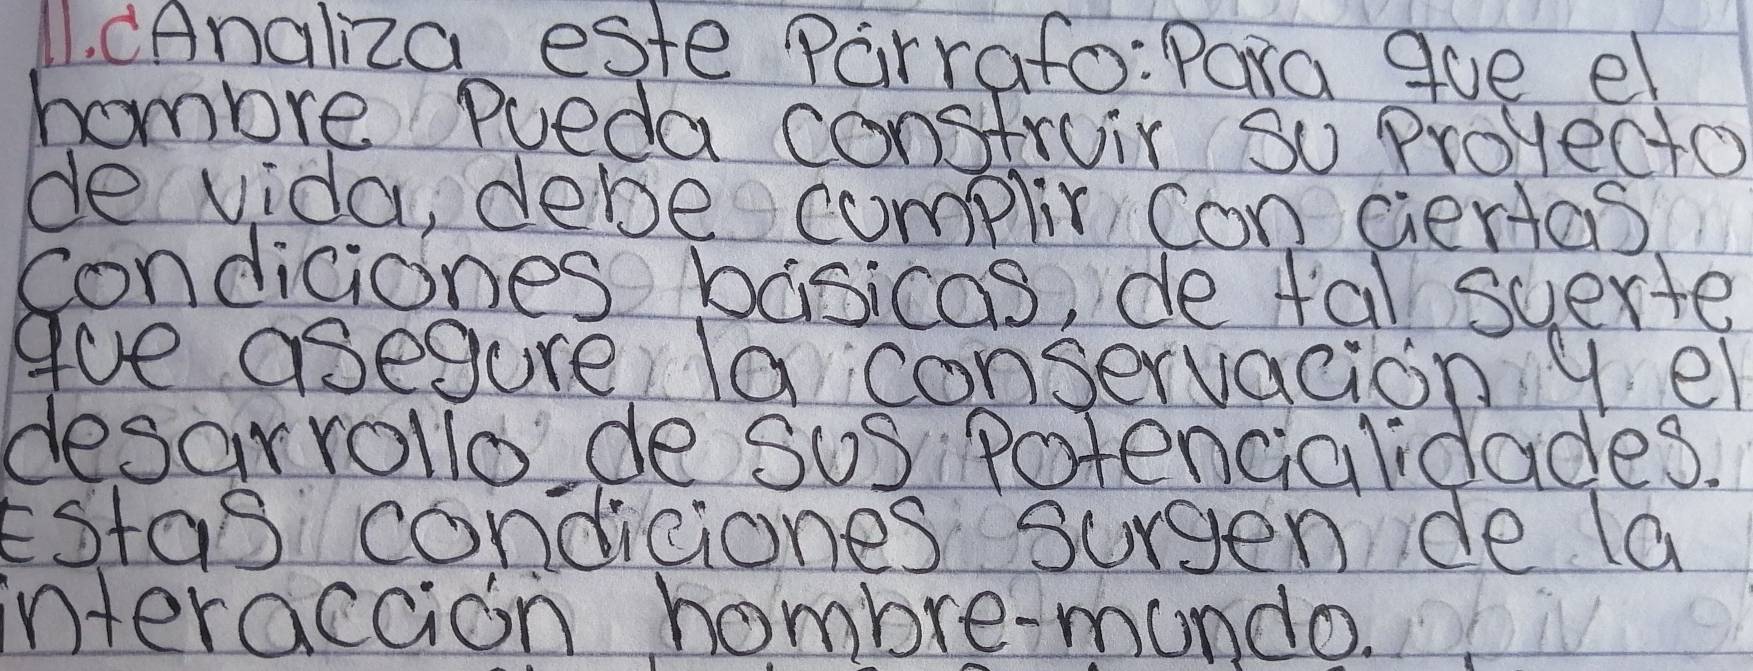 11.c Analiza este Párrafo: Para que el
hombre Pueda construir su Proyecto
de vida, debe cumplir con ciertas
condiciones básicas, de tal suerte
que asegure la conservación y el
desarrollo de sus Potencialidades.
Estas condiciones surgen de la
interacción hombre-mundo.